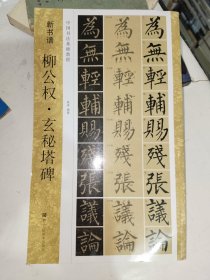 中国书法基础教程
新书谱
柳公权·玄秘塔碑
為 為 為
無 無 無
輕 輕 輕
輔 輔 輔
賜 賜 賜
殘 殘 殘
張 張 張
議 議 議
論 論 論